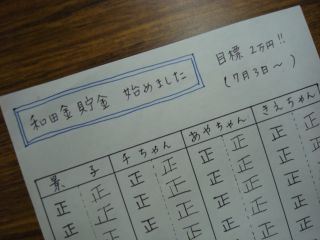 和田金貯金 始めました
目標 2万円!!
(7月3日～)
景子 千ちゃん あやちゃん きえちゃん
正 正 正 正 正 正 正 正
正 正 正 正 正 正 正 正
正 正 正 正 正 正
正 正